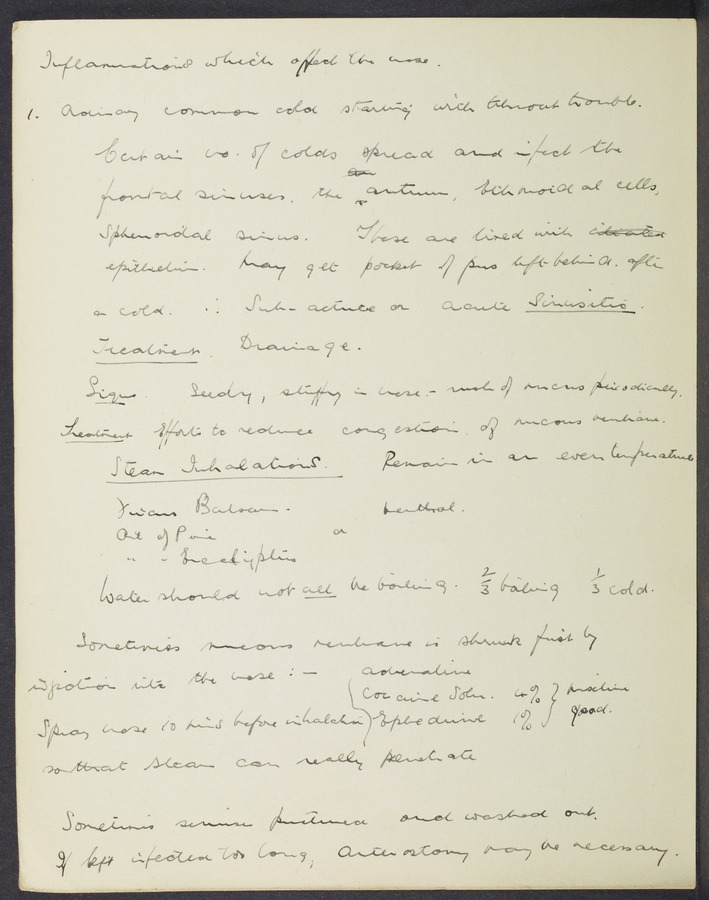 Inflammations which affect the nose.
1. Ordinary common cold starting with throat trouble.
Certain no. of colds spread and infect the
frontal sinuses, the antrum, Ethmoidal cells,
Sphenoidal sinus. These are lined with ciliated
epithelium. May get pocket of pus left behind after
a cold. ∴ Sub-acute or acute Sinusitis.
Treatment. Drainage.
Signs. Seedy, stuffy in nose - rush of mucus periodically.
Treatment Efforts to reduce congestion of mucous membrane.
Steam Inhalations. Remain in an even temperature
Friars Balsam. Menthol.
Oil of Pine or
" " Eucalyptus
Water should not all be boiling. 2/3 boiling 1/3 cold.
Sometimes mucous membrane is shrunk first by
injection into the nose :- adrenaline
Cocaine Soln. 4%
Spray nose 10 mins before inhalation Ephedrine 1% good.
so that steam can really penetrate
Sometimes sinuses punctured and washed out.
If left infected too long, Antrostomy may be necessary.